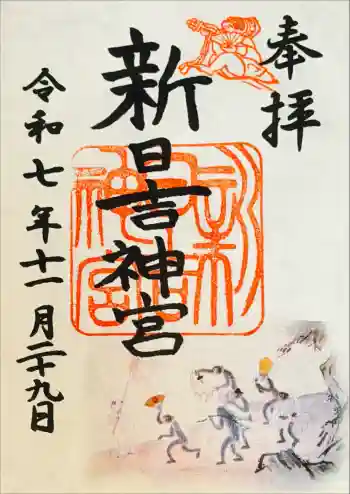 奉拝
新日吉神宮
令和七年十一月二十九日